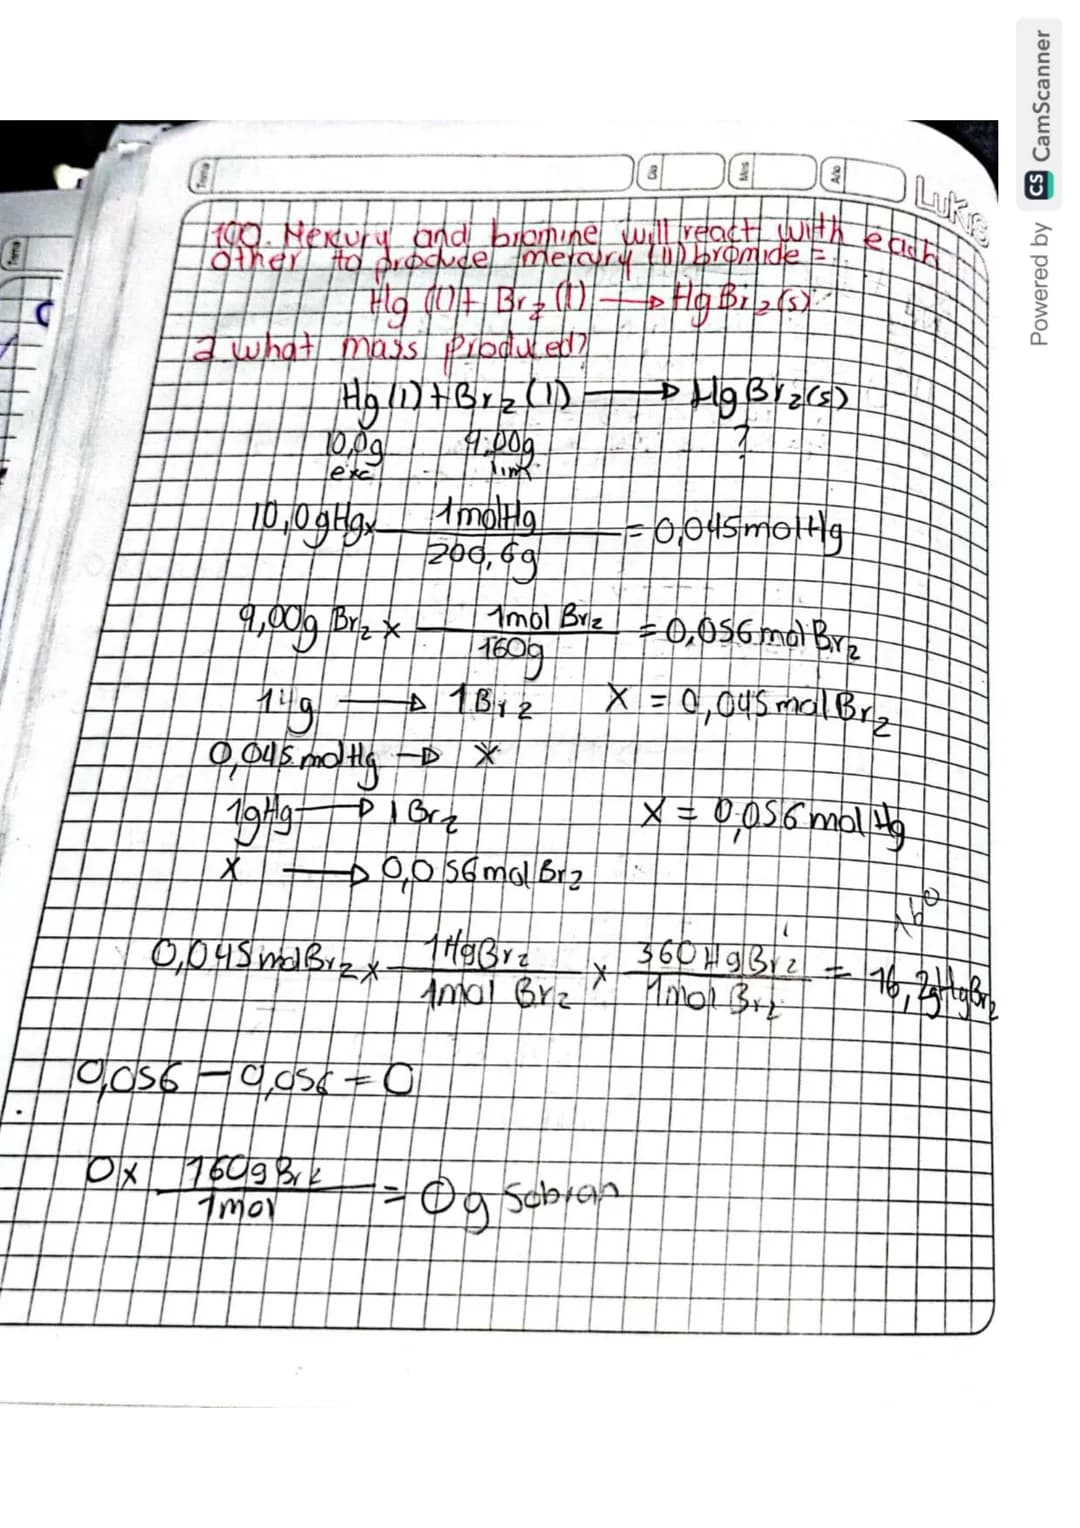 Tema
Dia
Mes
Año
Lukas
190. Mercury and bromine will react with each
other to produce mercury (II) bromide =
Hg (l) + Br2 (l) → HgBr2 (s)
a what mass produced?
Hg (l) + Br2 (l) → HgBr2(s)
10,0g 9,00g ?
exc lim
10,0gHg x 1molHg = 0,045molHg
200,6g
9,00g Br2 x 1mol Br2 = 0,056molBr2
160g
1Hg → 1Br2 X = 0,045molBr2
0,045molHg → X
1gHg → 1Br2 X = 0,056molHg
X → 0,056molBr2
0,045molBr2 x 1HgBr2 x 360HgBr2 = 16,2gHgBr2
1mol Br2 1mol Br2
0,056 - 0,056 = 0
0x 160gBr2 = 0g Sobran
1mol
Powered by CS CamScanner